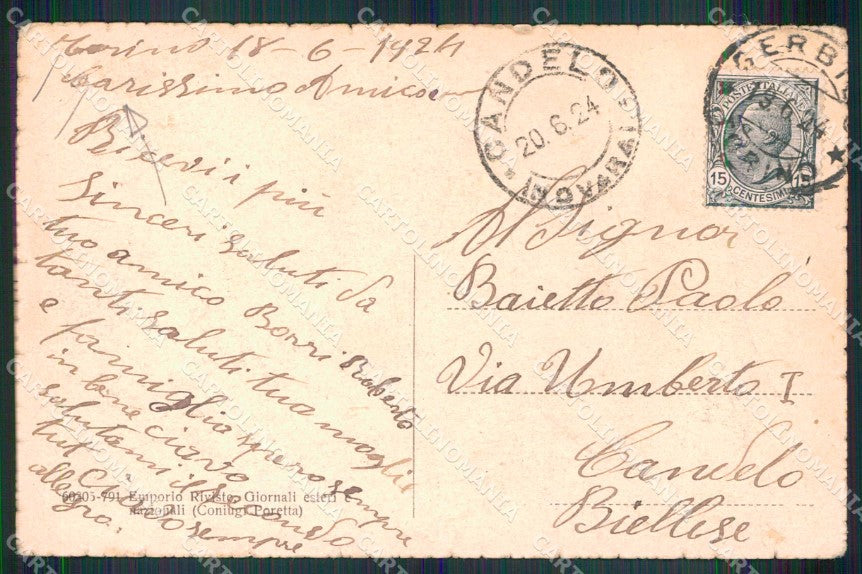 Torino 18-6-1924
Carissimo Amico
Ricevi i più
Sinceri saluti da
tuo amico Borri Roberto
tanti saluti tua moglie
e famiglia spero sempre
in bene ciavo
salutami il
tut sempre
allegro.
60305-791 Emporio Riviste, Giornali esteri e
nazionali (Coniugi Poretta)
CANDELO
20.6.24
(NOVARA)
GERBI
POSTE ITALIANE
15 CENTESIMI 15
Al Signor
Baietto Paolo
Via Umberto I
Candelo
Biellese
CARTOLINOMANIA